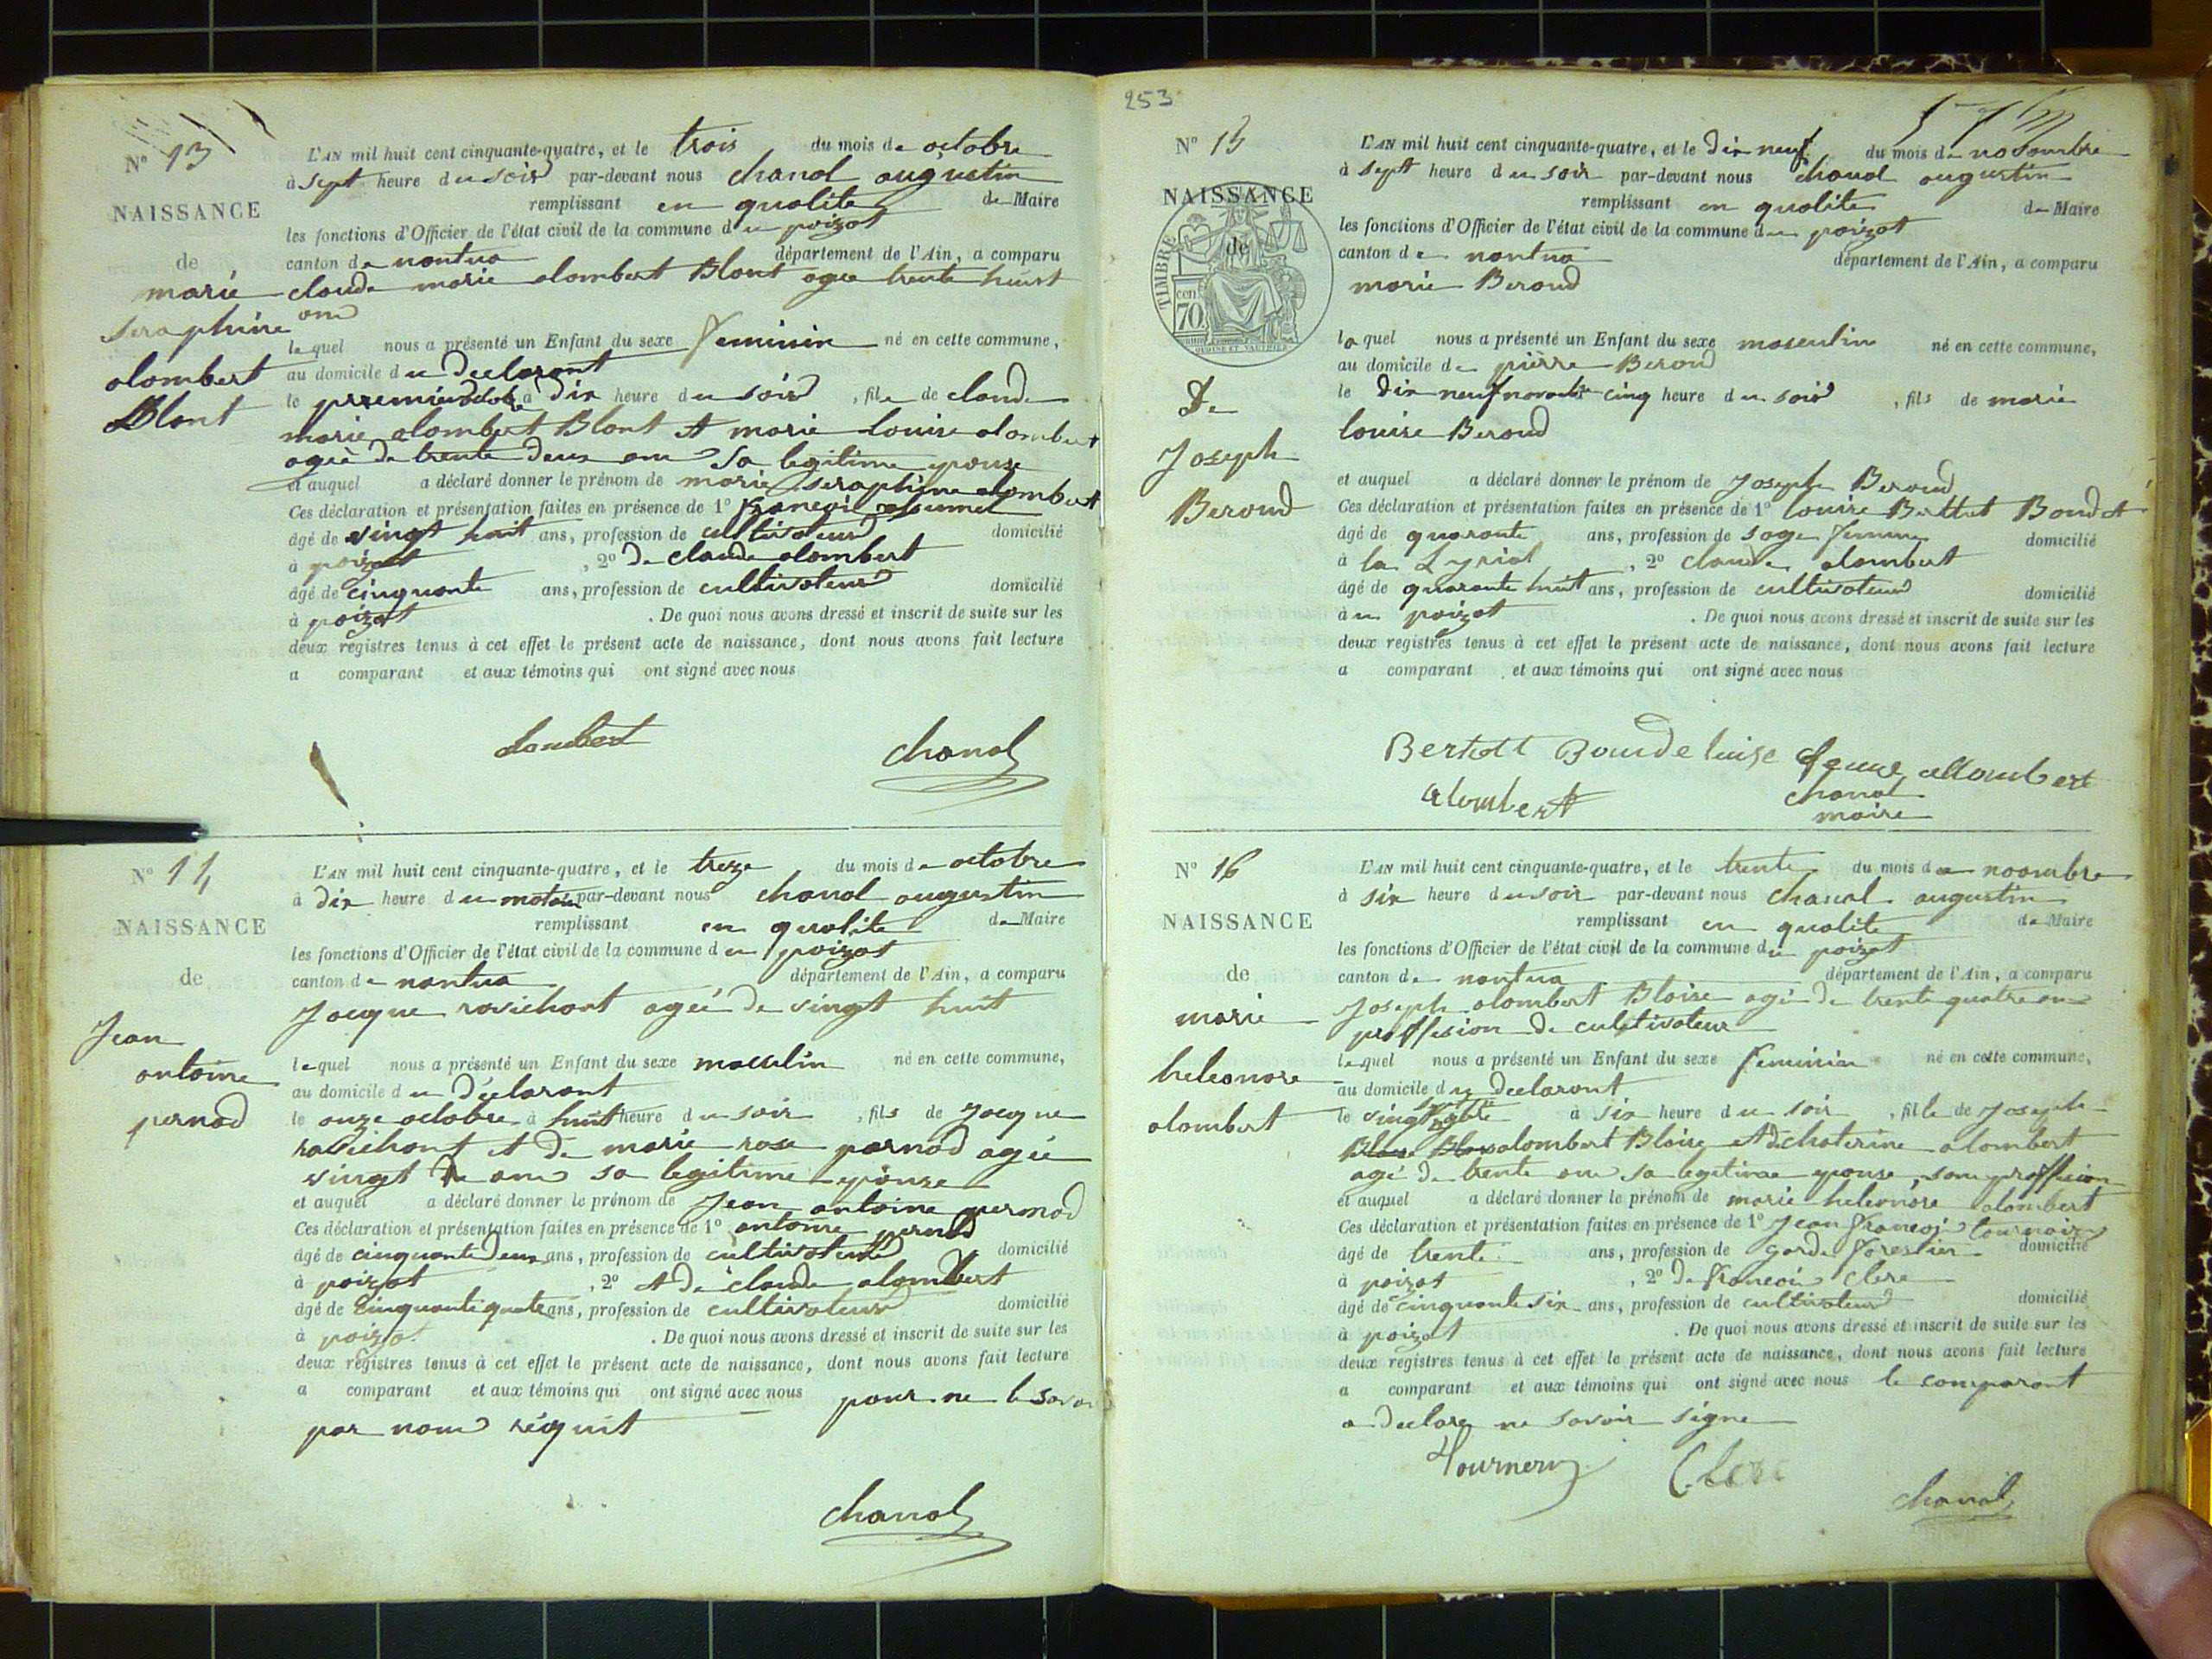 N° 13
NAISSANCE
de
marie
seraphine
alombert
Blant
L'AN mil huit cent cinquante-quatre, et le trois du mois de octobre
à sept heure du soir par-devant nous chanal augustin
remplissant en qualite de Maire
les fonctions d'Officier de l'état civil de la commune du poizat
canton de nantua département de l'Ain, a comparu
claude marie alombert Blant agee trente huist
ans
lequel nous a présenté un Enfant du sexe feminin né en cette commune,
au domicile du declarant
le premier octobre à dix heure du soir, file de claude
marie alombert Blant et marie louise alombert
ageè de trente deux ans sa legitime epouse
et auquel a déclaré donner le prénom de marie seraphine alombert
Ces déclaration et présentation faites en présence de 1° francois
âgé de vingt huit ans, profession de cultivateur domicilié
à poizat, 2° de claude alombert
âgé de cinquante ans, profession de cultivateur domicilié
à poizat. De quoi nous avons dressé et inscrit de suite sur les
deux registres tenus à cet effet le présent acte de naissance, dont nous avons fait lecture
a comparant et aux témoins qui ont signé avec nous
alombert chanal
N° 14
NAISSANCE
de
Jean
antoine
pernod
L'AN mil huit cent cinquante-quatre, et le treze du mois de octobre
à dix heure du matin par-devant nous chanal augustin
remplissant en qualite de Maire
les fonctions d'Officier de l'état civil de la commune du poizat
canton de nantua département de l'Ain, a comparu
Jacque ravichant ageé de vingt huit
lequel nous a présenté un Enfant du sexe masculin né en cette commune,
au domicile du déclarant
le onze octobre à huit heure du soir, fils de Jacque
ravichant et de marie rose pernod ageé
vingt ans sa legitime epouse
et auquel a déclaré donner le prénom de Jean antoine pernod
Ces déclaration et présentation faites en présence de 1° antoine pernod
âgé de cinquante deux ans, profession de cultivateur domicilié
à poizat, 2° et de claude alombert
âgé de cinquante quatre ans, profession de cultivateur domicilié
à poizat. De quoi nous avons dressé et inscrit de suite sur les
deux registres tenus à cet effet le présent acte de naissance, dont nous avons fait lecture
a comparant et aux témoins qui ont signé avec nous pour ne le savoir
par nous réquit
chanal
253
N° 15
NAISSANCE
de
TIMBRE
cen.
70
De
Joseph
Beroud
L'AN mil huit cent cinquante-quatre, et le dix neuf du mois de novembre
à sept heure du soir par-devant nous chanal augustin
remplissant en qualite de Maire
les fonctions d'Officier de l'état civil de la commune du poizat
canton de nantua département de l'Ain, a comparu
marie Beroud
laquel nous a présenté un Enfant du sexe masculin né en cette commune,
au domicile de pièrre Beroud
le dix neuf cinq heure du soir, fils de marie
louise Beroud
et auquel a déclaré donner le prénom de Joseph Beroud
Ces déclaration et présentation faites en présence de 1° louise Berttet
âgé de quarante ans, profession de sage femme domicilié
à la Leyriat, 2° claude alombert
âgé de quarante huit ans, profession de cultivateur domicilié
à u poizat. De quoi nous avons dressé et inscrit de suite sur les
deux registres tenus à cet effet le présent acte de naissance, dont nous avons fait lecture
a comparant et aux témoins qui ont signé avec nous
Bertett Boude luise femme allombert
alombert chanal
maire
N° 16
NAISSANCE
de
marie
heleonore
alombert
L'AN mil huit cent cinquante-quatre, et le trente du mois de noombre
à six heure du soir par-devant nous chanal augustin
remplissant en qualite de Maire
les fonctions d'Officier de l'état civil de la commune du poizat
canton de nantua département de l'Ain, a comparu
Joseph alombert Blaise agé de trente quatre ans
proffesion de cultivateur
lequel nous a présenté un Enfant du sexe feminin né en cette commune,
au domicile du declarant
le vingt à six heure du soir, fille de Joseph
alombert Blaise et de chaterine alombert
agé de trente ans sa legitime epouse, sans proffesion
et auquel a déclaré donner le prénom de marie heleonore alombert
Ces déclaration et présentation faites en présence de 1° Jean francois
âgé de trente ans, profession de garde forestier domicilié
à poizat, 2° de francois clere
âgé de cinquante six ans, profession de cultivateur domicilié
à poizat. De quoi nous avons dressé et inscrit de suite sur les
deux registres tenus à cet effet le présent acte de naissance, dont nous avons fait lecture
a comparant et aux témoins qui ont signé avec nous le comparant
a declare ne savoir signe
Clere
chanal